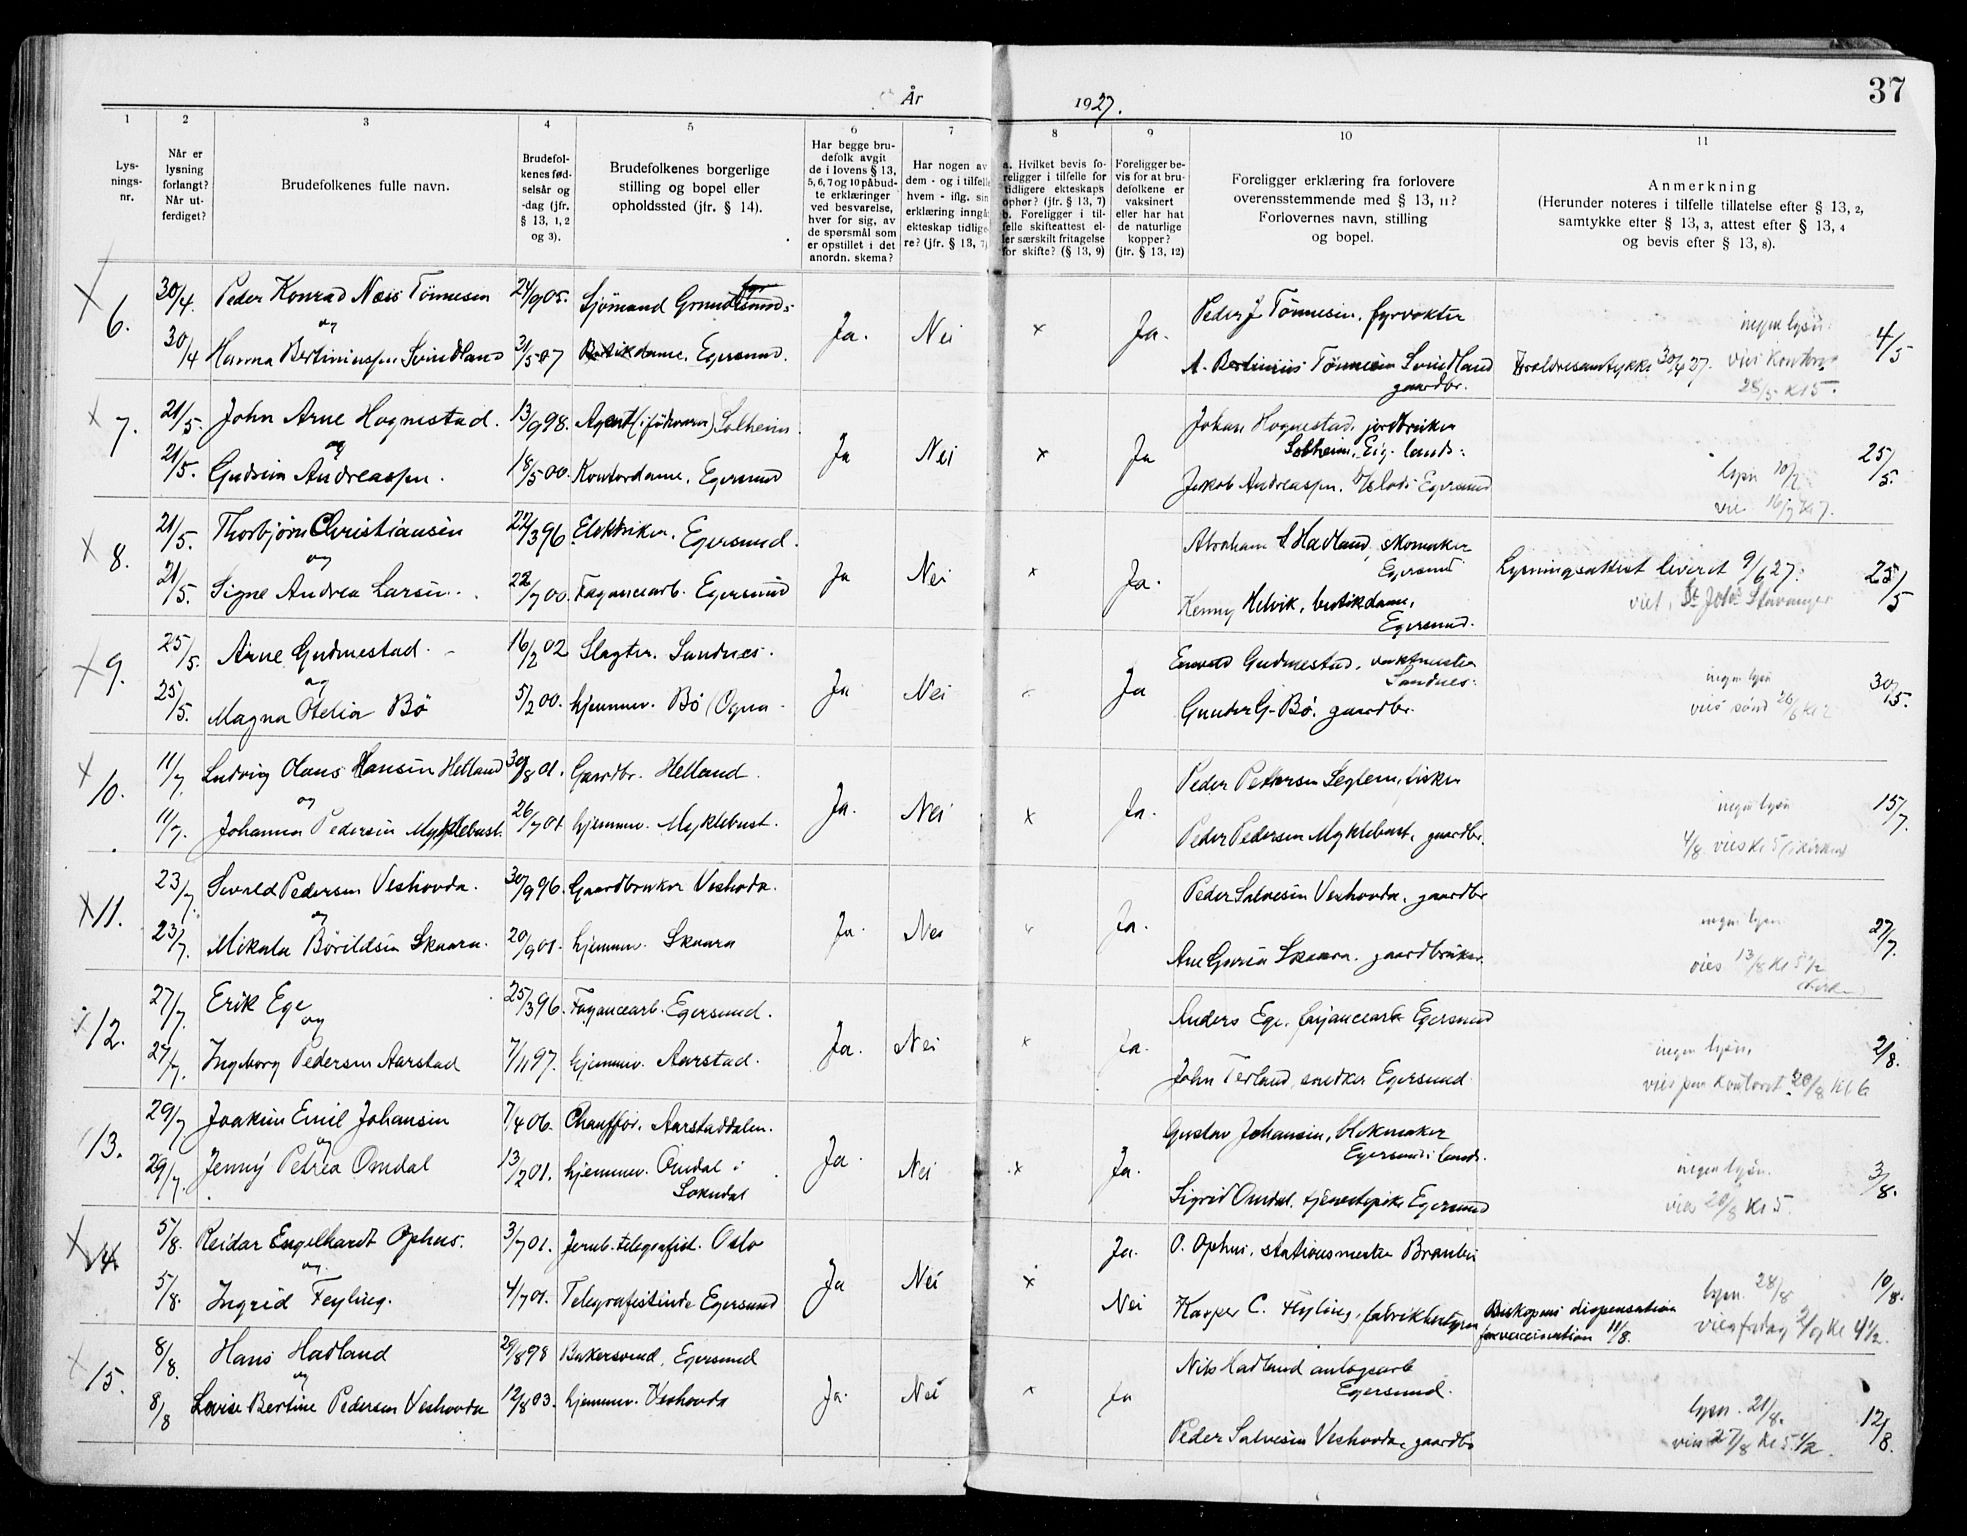 37
År 1927.
1 2 3 4 5 6 7 8 9 10 11
Lys-
nings-
nr.
Når er
lysning
forlangt?
Når ut-
ferdiget?
Brudefolkenes fulle navn.
Brudefol-
kenes fød-
selsår og
-dag (jfr.
§ 13, 1, 2
og 3).
Brudefolkenes borgerlige
stilling og bopel eller
opholdssted (jfr. § 14).
Har begge bru-
defolk avgit
de i lovens § 13,
5, 6, 7 og 10 påbud-
te erklæringer
ved besvarelse,
hver for sig, av
de spørsmål som
er opstillet i det
anordn. skema?
Har nogen av
dem - og i tilfelle
hvem - iflg. sin
erklæring inngå
ekteskap tidlige-
re? (jfr. § 13, 7)
a. Hvilket bevis fo-
religger i tilfelle for
tidligere ekteskaps
ophør? (jfr. § 13, 7)
b. Foreligger i til-
felle skifteattest el-
ler særskilt fritagelse
for skifte? (§ 13, 9)
Foreligger be-
vis for at bru-
defolkene er
vaksinert
eller har hat
de naturlige
kopper?
(jfr. § 13, 12)
Foreligger erklæring fra forlovere
overensstemmende med § 13, 11?
Forlovernes navn, stilling
og bopel.
Anmerkning
(Herunder noteres i tilfelle tillatelse efter § 13, 2,
samtykke efter § 13, 3, attest efter § 13, 4
og bevis efter § 13, 8).
x 6. 30/4. Peder Konrad Næss Tönnesen 24/9 05. Sjömand Ja. Nei x Ja. Peder J Tönnesen, fyrvokter ingen lysn. 4/5
og
30/4 Hanna Bertiniussen Svindland 31/5 07 Butikdame, Egersund. A. Bertinius Tönnesen Svindland Forældresamtykke 30/4 27. vies Kontoret
gaardbr. 28/5 kl 5.
x 7. 21/5. John Arne Hognestad. 13/9 98. Agent Solheim. Ja Nei x Ja Johan Hognestad, jordbruker
og Solheim, Eig. lands: 25/5.
21/5. Gudrun Andreassen. 18/5 00. Kontordame, Egersund Jakob Andreassen, Egersund lysn 10/7
vie 16/7 kl 7.
x 8. 21/5. Thorbjørn Christiansen 22/3 96. Elektriker. Egersund. Ja Nei x Ja. Abraham S Hadland, skomaker
og Egersund Lysningsattest leveret 9/6 27. 25/5
21/5. Signe Andrea Larsen. 22/7 00. Fayancearb. Egersund Kenny Helvik, butikdame, viet i St. Joh. Stavanger
Egersund.
x 9. 25/5. Arne Gudmestad. 16/2 02 Slagter. Sandnes. Ja Nei x Ja Gudmestad, verkmester
og Sandnes. ingen lysn 30/5.
25/5. Magna Otelia Bö 5/2 00. hjemmev. Bö (Ogna Gunder G. Bö. gaardbr. vies sönd 26/6 kl 2
x 10. 11/7. Ludvig Olaus Hansen Helland 30/8 01. Gaardbr. Helland. Ja. Nei x Ja. Peder Pettersen Segtem, fisker
og ingen lysn 15/7.
11/7. Johanna Pedersen Myklebust. 26/7 01. hjemmev. Myklebust. Peder Pedersen Myklebust, gaardbr. 4/8. vies kl 5 (i kirken)
x 11. 23/7. Sevald Pedersen Veshovda. 30/9 96. Gaardbruker Veshovda. Ja. Nei x Ja. Peder Salvesen Veshovda, gaardbr
og ingen lysn. 27/7.
23/7. Mikala Börildsen Skaara. 20/9 01. hjemmev. Skaara Skaara. gaardbruker. vies 13/8 kl 5 1/2
x 12. 27/7. Erik Ege 25/3 96. Fayancearb. Egersund. Ja. Nei x Ja. Anders Ege, fayancearb Egersund
og ingen lysn, 2/8.
27/7. Ingeborg Pedersen Aarstad 7/11 97. hjemmev. Aarstad. John Terland, snedker Egersund. vies paa Kontoret 20/8 kl 6
13. 29/7 Joakim Emil Johansen 7/4 06. Chauffør. Aarstaddalen. Ja. Nei x Ja. Gustav Johansen, blikmaker
og Egersunds lands.
29/7. Jenny Petrea Omdal 13/2 01. hjemmev. Omdal i ingen lysn. 3/8.
Sokndal Sigrid Omdal. tjenestepike Egersund vies 20/8 kl 5.
x 14. 5/8. Reidar Engelhardt Ophus. 3/7 01. Jernb. telegrafist. Oslo Ja Nei x Ja. O. Ophus, stationsmester
og
5/8. Ingrid Feyling. 4/7 01. Telegrafistinde Egersund Nei Kasper C. Feyling, Biskopens dispensation lysn. 28/8 10/8.
for vaccination 11/8. vies fredag 2/9 kl 4 1/2.
x 15. 8/8. Hans Hadland 29/8 98 Bakersvend, Egersund Ja. Nei x Ja Nils Hadland anlægsarb
og Egersund.
8/8 Lovise Bertine Pedersen Veshovda 12/8 03. hjemmev. Veshovda Peder Salvesen Veshovda, gaardbr lysn. 21/8. 12/8.
vies 27/8 kl 5 1/2.